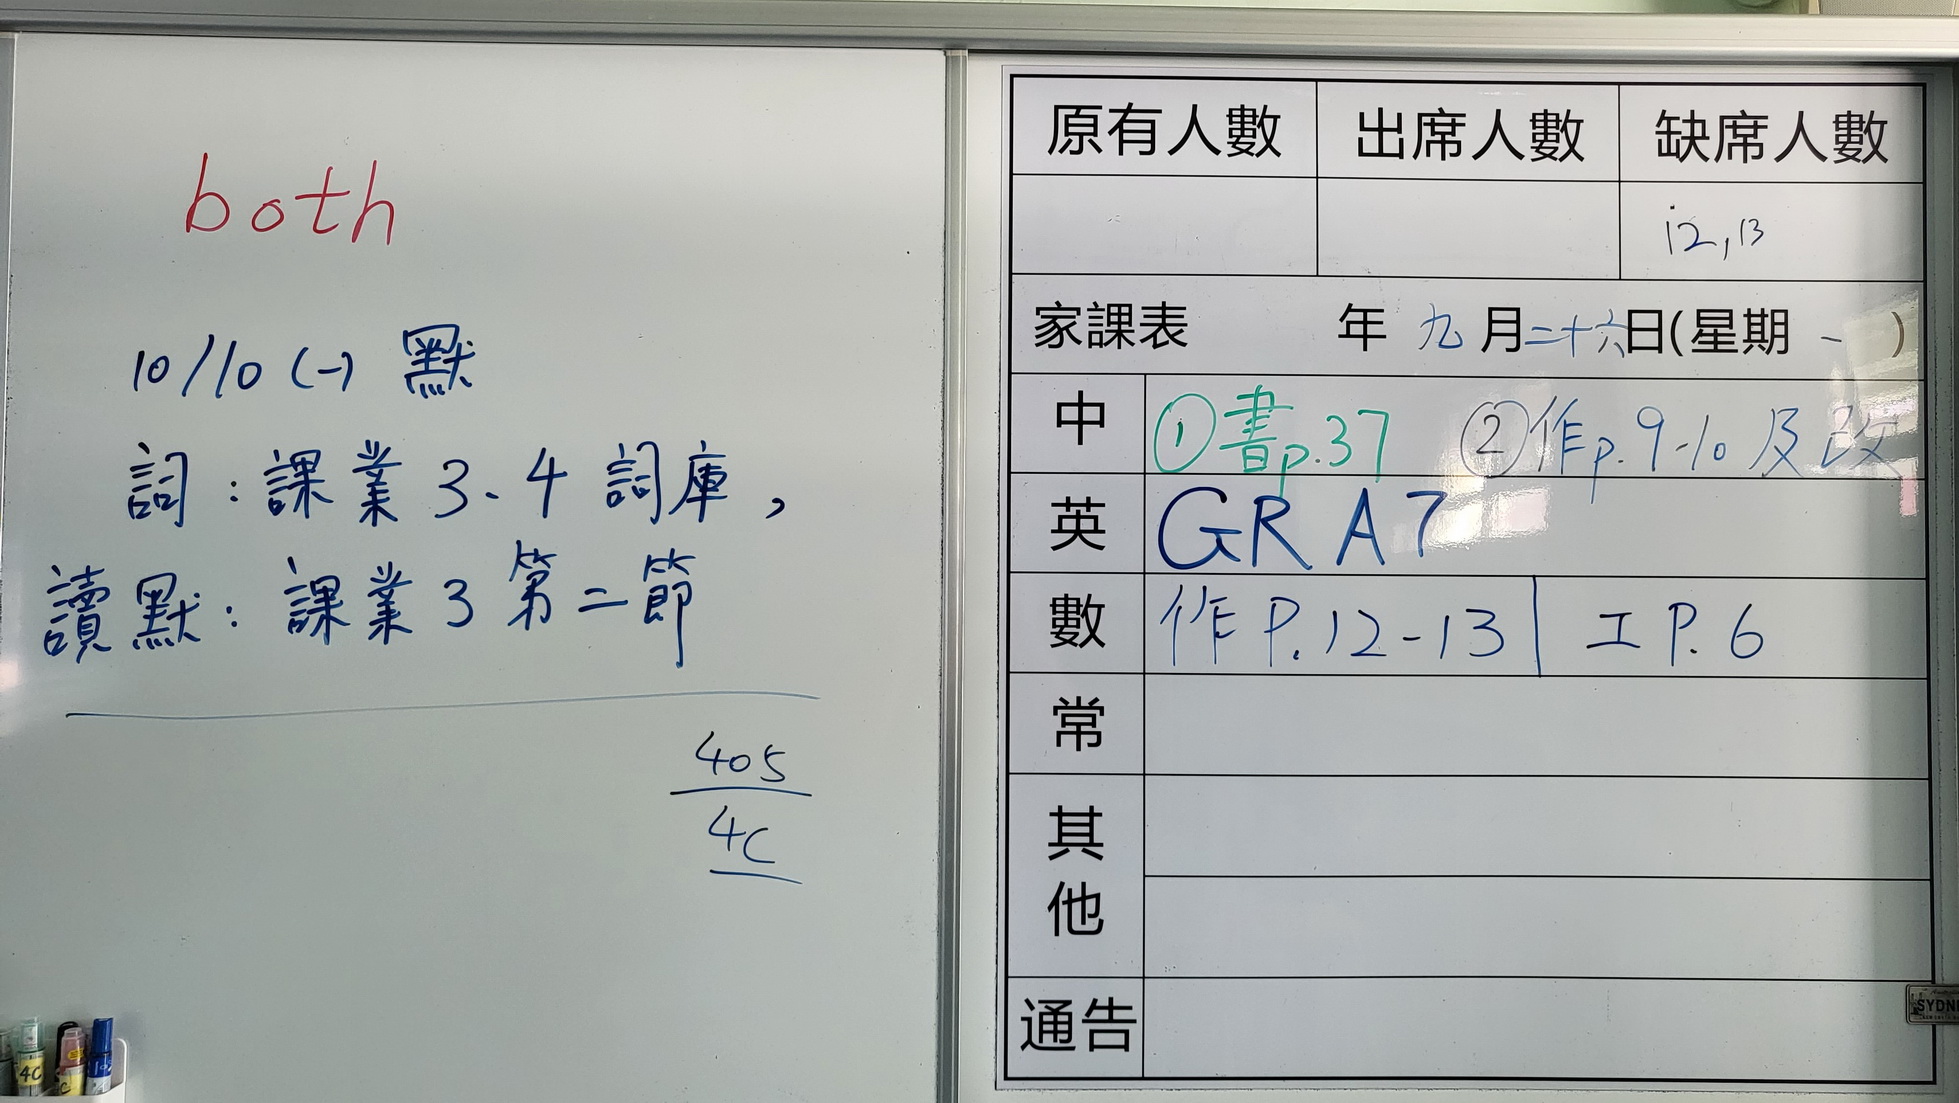 both
10/10 (一) 默
詞：課業3、4詞庫，
讀默：課業3第二節
405
4C
原有人數 出席人數 缺席人數
12,13
家課表 年九月二十六日(星期一)
中 ①書p.37 ②作p.9-10及改
英 GR A7
數 作P.12-13 | 工P.6
常
其他
通告
4C
SYDN